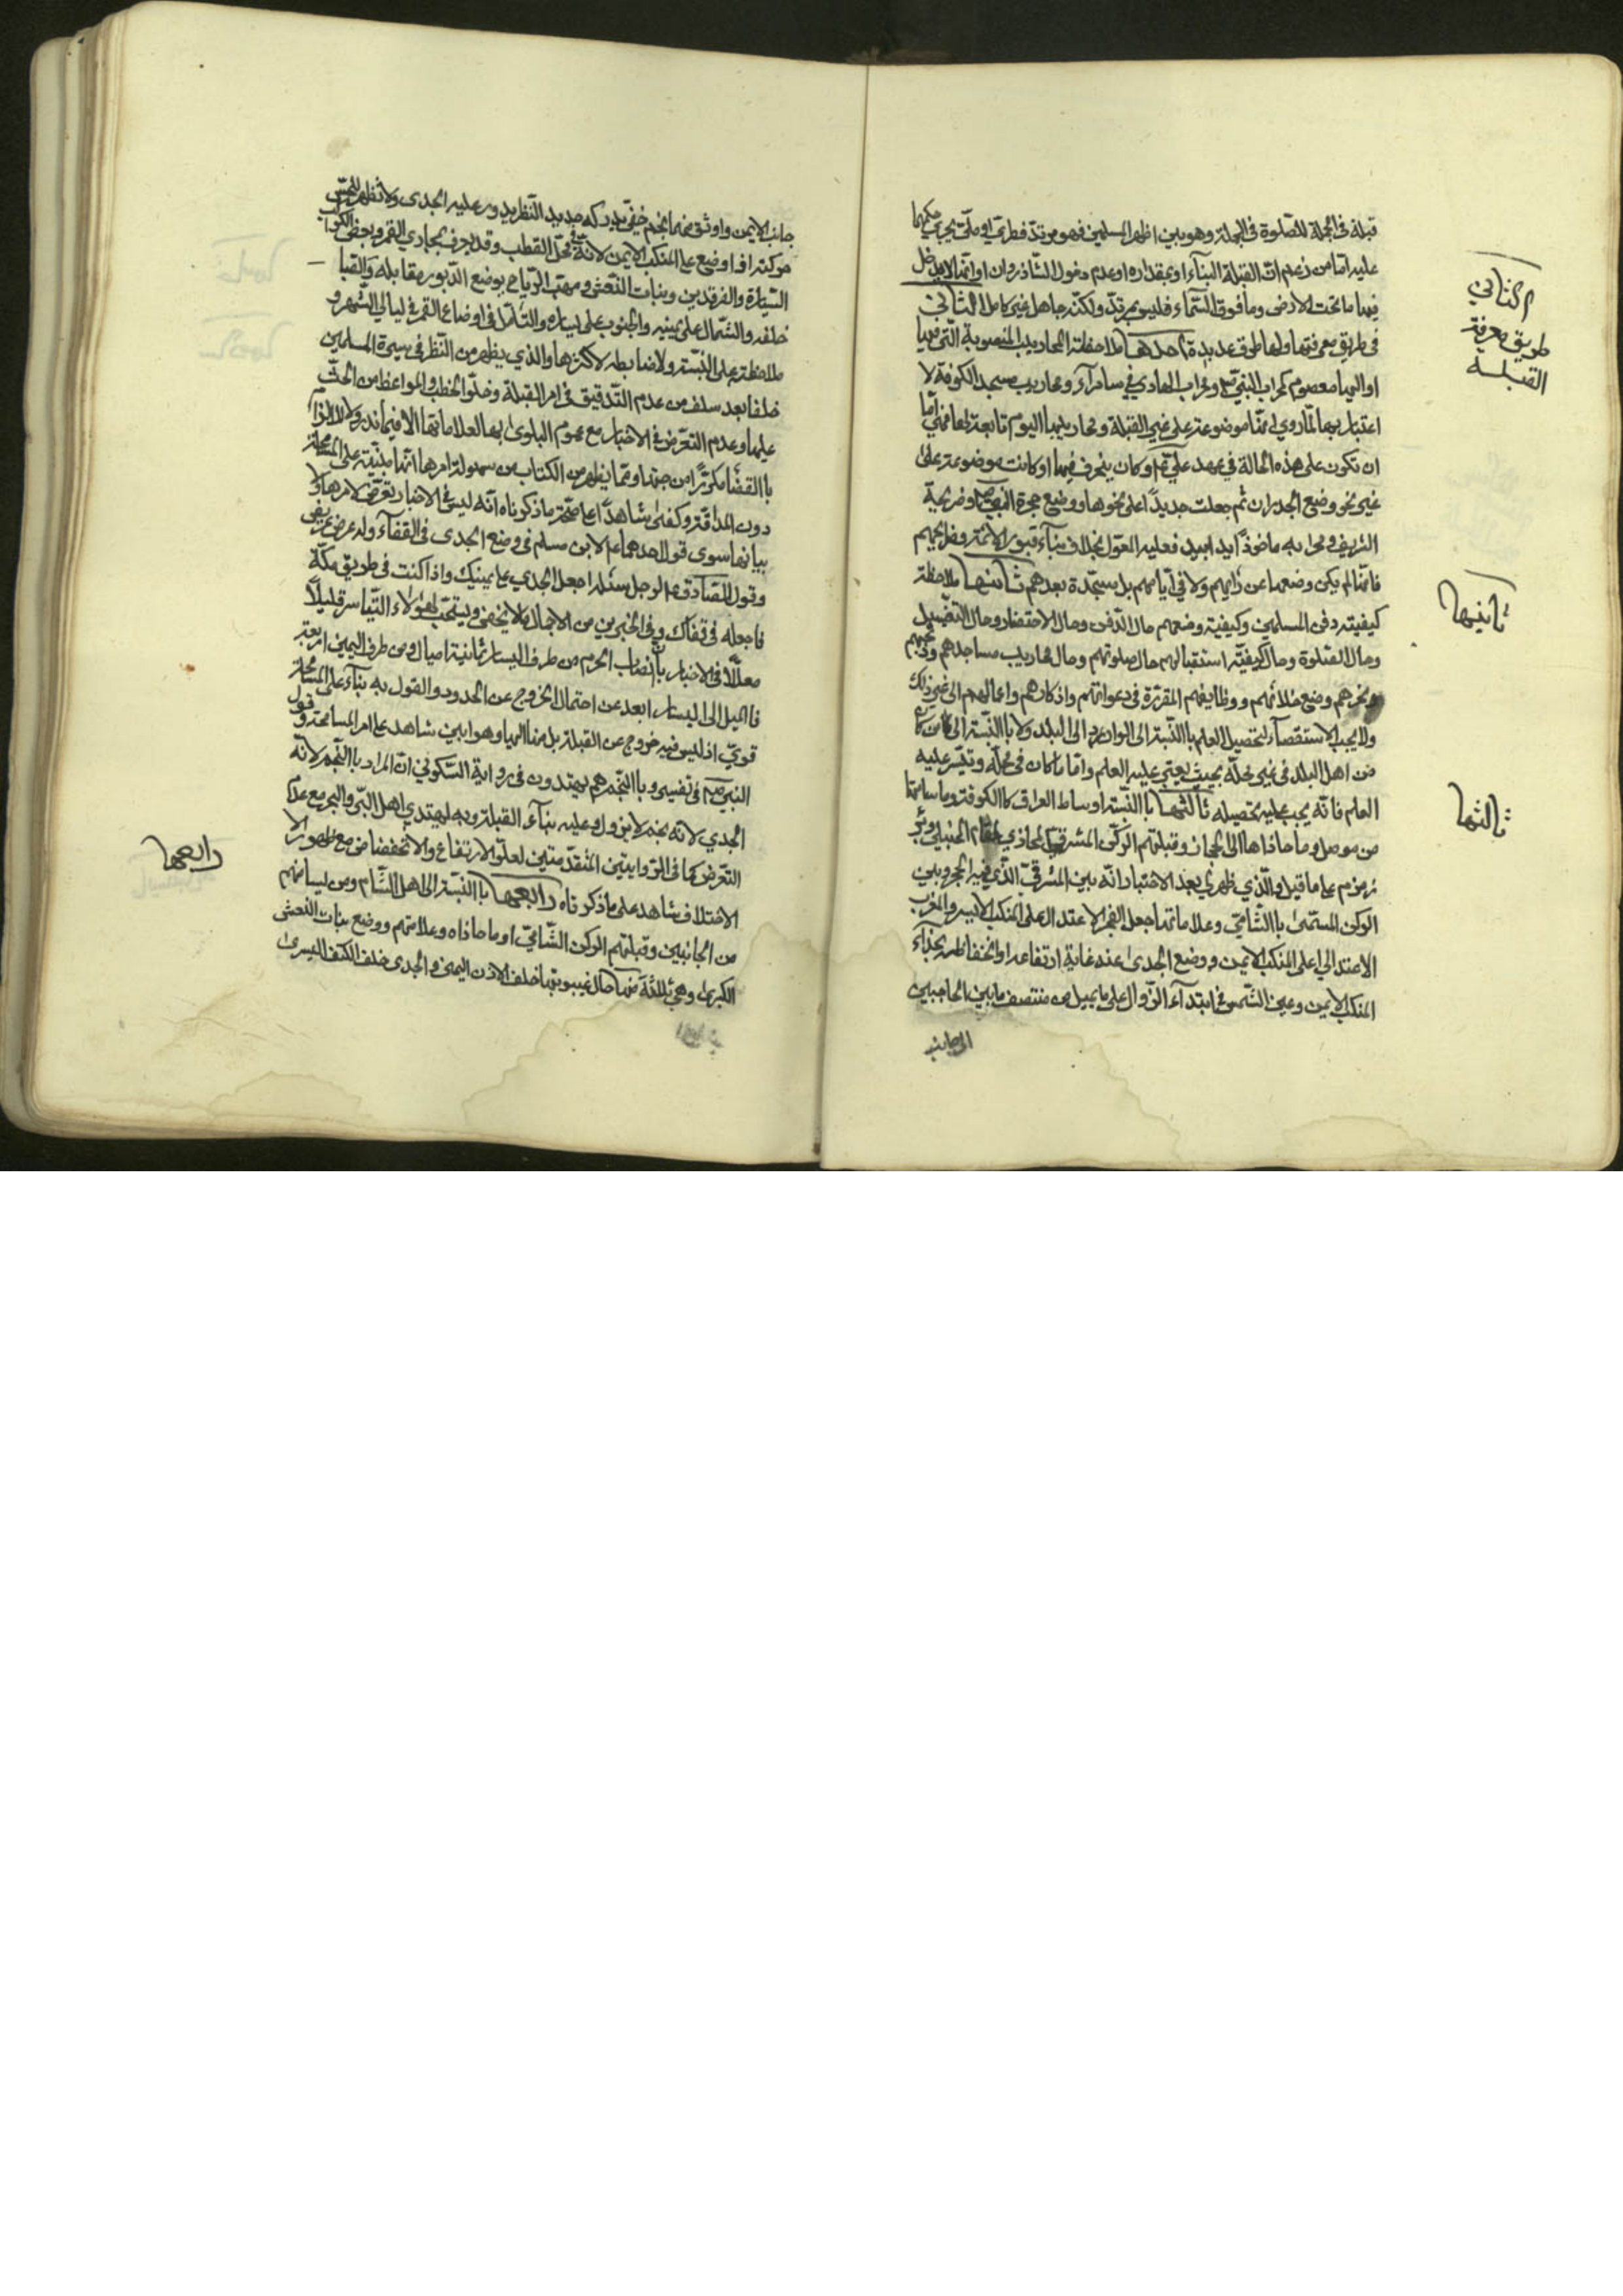 قبلة في الجملة للصلوة في الجملة وهو بين اظهر المسلمين فهو مرتد فطري او ملي يجري حكمهما
عليه امّا من زعم انّ القبلة البناء او بمقداره او عدم دخول الشاذروان او انّه لا يدخل
فيها ما تحت الارض وما فوق السّماء فليس بمرتدّ ولكنّه جاهل غير كامل الثاني
في طريق معرفتها ولها طرق عديدة احدها ملاحظة المحاريب المنصوبة التي
او اليها معصوم كمحراب النبيّ ومحراب الهادي في سامرآء ومحاريب مسجد الكوفة لا
اعتبار بها لما روي انها موضوعة على غير القبلة ومحاريبها اليوم تابعة لها فهي امّا
ان تكون على هذه الحالة في عهد عليّ وكان ينحرف فيها او كانت موضوعة على
غير نحو وضع الجدران ثم جعلت جديداً على نحوها ووضع حجرة النبي وضريحه
الشريف ومحرابه ماخوذ يدا بيد فعليه المعوّل بخلاف بناء قبور الائمة وضرايحهم
فانّها لم يكن وضعها عن رأيهم ولا في ايّامهم بل مستجدة بعدهم ثانيها ملاحظة
كيفيته دفن المسلمين وكيفية وضعهم حال الدّفن وحال الاحتضار وحال التغسيل
وحال الصّلوة وحال كيفيّة استقبالهم حال صلوتهم وحال محاريب مساجدهم وذبحهم
ونحرهم وضع خلائهم ووظايفهم المقررة في دعواتهم واذكارهم واعمالهم الى غير ذلك
ولا يجب الاستقصآء لتحصيل العلم باالنّسبة الى الوارد الى البلد ولا باالنّسبة الى كان
من اهل البلد في غير محلّه بحيث يعتبر عليه العلم وامّا ما كان في محلّه وتيسّر عليه
العلم فانّه يجب عليه تحصيله ثالثها باالنّسبة اوساط العراق كاالكوفة وما سامتها
من موصل وما حاذاها الى الحجاز وقبلتهم الركن المشرقي المحاذي لمقام الحنبلي وبئر
زمزم على ما قيل والّذي ظهر لي بعد الاختبار انّه بين المشرقيّ الّذي فيه الحجر وبين
الركن المسمّى باالشّاميّ وعلاماتها جعل الفجر الاعتدالي على المنكب الايسر والمغرب
الاعتدالي على المنكب الايمن ووضع الجدى عند غاية ارتفاعه او انخفاظه بحذاء
المنكب الايمن وعين الشّمس في ابتداء الزّوال على ما يميل من منتصف ما بين الحاجبين
الى جانب
الثاني
طريق معرفة
القبلة
ثانيها
ثالثها
جانب الايمن واوثق منهما نجم خفيّ يدركه حديد النّظر يدور عليه الجدى ولا تظهر للحسّ
حركته اذا وضع على المنكب الايمن لانه في محلّ القطب وقد يعرف بمجاري القمر وبعض الكواكب
السّيّارة والفرقدين وبنات النّعش ومهبّ الرّياح بوضع الدّبور مقابله والصّبا
خلفه والشّمال على يمينه والجنوب على يساره والتأمّل في اوضاع القمر في ليالي الشّهر و
ملاحظته على النّسبة ولا ضابطه لاكثرها والذي يظهر من النّظر في سيرة المسلمين
خلفا بعد سلف من عدم التّدقيق في امر القبلة وخلوّ الخطب والمواعظ من الحثّ
عليها وعدم التعرّض في الاخبار مع عموم البلوى بها لعلاماتها الا فيما ندر ولا
باالقضا من جهتها وممّا يظهر من الكتاب من سهولة امرها انّها مبنيّة على المسامحة
دون المداقّة وكفى شاهدًا على صحّة ما ذكرناه انّه ليس في الاخبار تعرّض لامرها ولا
بيانها سوى قول احدهما لابن مسلم في وضع الجدى في القفاء
وقول الصّادق لرجل سئله اجعل الجدي على يمينك واذا كنت في طريق مكّة
فاجعله في قفاك وفي الخبرين من الاجمال ما لا يخفى ويستحبّ لهؤلاء التّياسر قليلاً
معلّلاً في الاخبار بأنّ انصاب الحرم من طرف اليسار ثمانية اميال ومن طرف اليمين اربعة
فاالميل الى اليسار ابعد عن احتمال الخروج عن الحدود والقول به بناء على المسامحة
قويّ اذ ليس فيه خروج عن القبلة بل منها اليها وهو ابين شاهد على امر المسامحة وقول
النبي في تفسير وباالنّجم هم يهتدون في رواية السّكوني انّ المراد باالنّجم
الجدي لانه نجم لا يزول وعليه بنآء القبلة وبه يهتدي اهل البّر والبحر مع عدم
التعّرض كما في الرّوايتين المتقدّمتين لعلّو الارتفاع والانخفاض مع ظهور
الاختلاف شاهد على ما ذكرناه رابعها باالنّسبة الى اهل الشّام ومن يسامتهم
من الجانبين وقبلتهم الركن الشّاميّ او ما حاذاه وعلامتهم ووضع بنات النعش
الكبرى وهي ثلثة منها حال غيبوبتها خلف الاذن اليمنى والجدى خلف الكتف اليسرى
رابعها